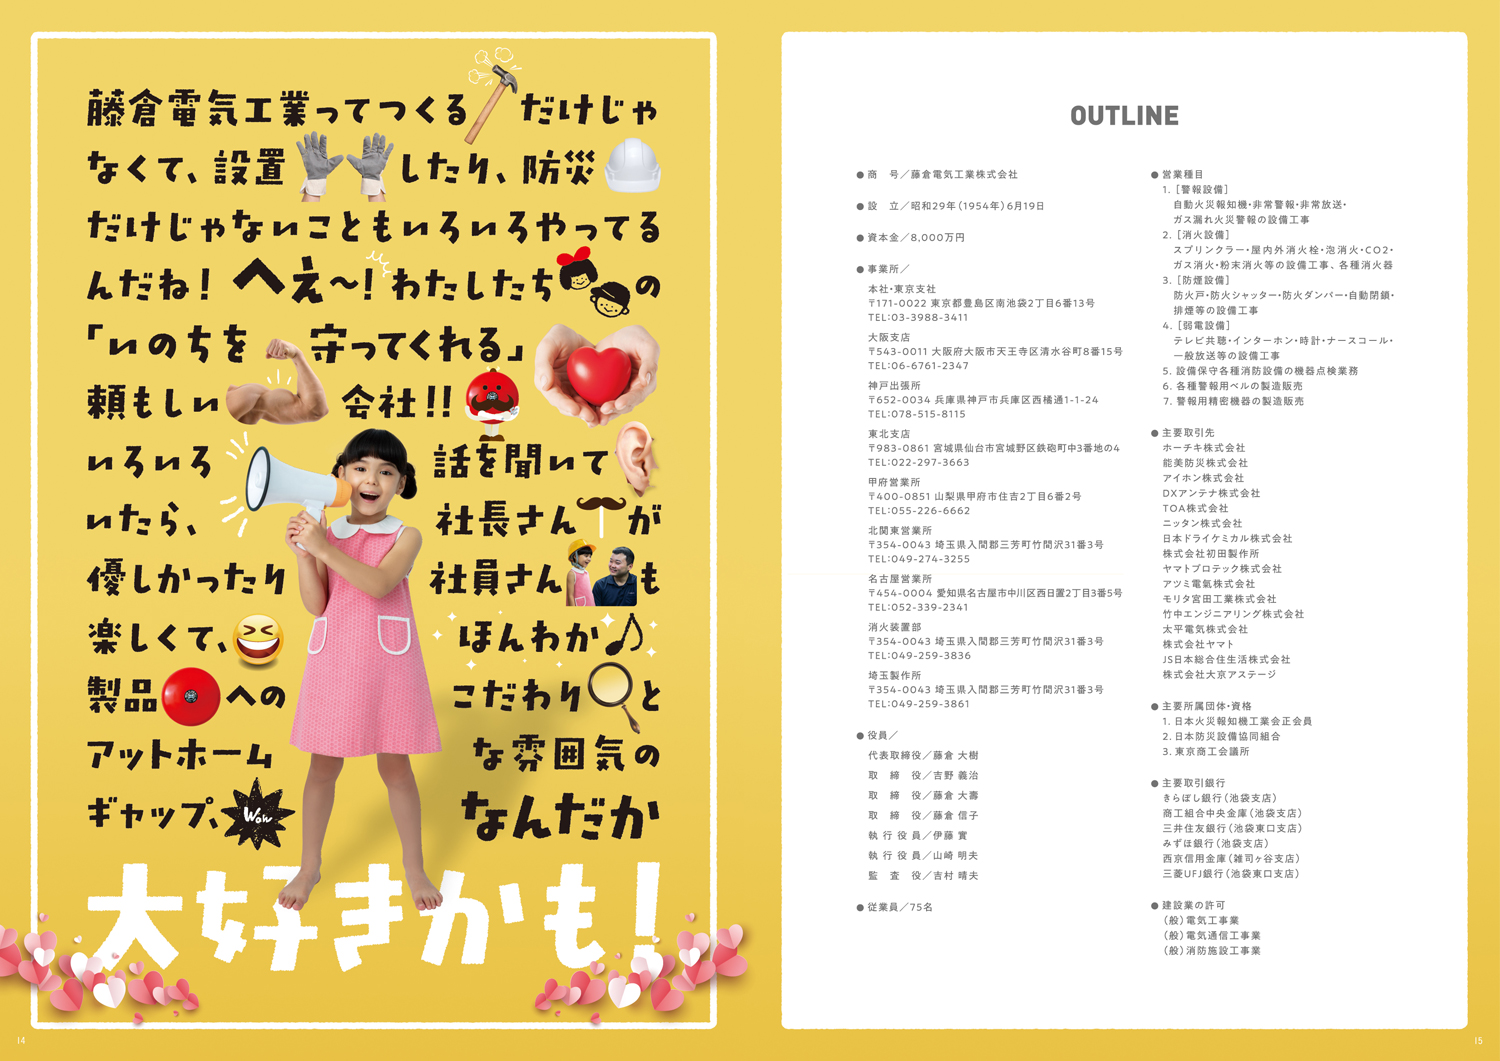 藤倉電気工業ってつくるだけじゃ
なくて、設置したり、防災
だけじゃないこともいろいろやってる
んだね！へぇ〜！わたしたちの
「いのちを守ってくれる」
頼もしい会社!!
いろいろ話を聞いて
いたら、社長さんが
優しかったり社員さんも
楽しくて、ほんわか
製品へのこだわりと
アットホームな雰囲気の
ギャップ、Wowなんだか
大好きかも！
14
OUTLINE
●商　号／藤倉電気工業株式会社
●設　立／昭和29年（1954年）6月19日
●資本金／8,000万円
●事業所／
本社・東京支社
〒171-0022 東京都豊島区南池袋2丁目6番13号
TEL:03-3988-3411
大阪支店
〒543-0011 大阪府大阪市天王寺区清水谷町8番15号
TEL:06-6761-2347
神戸出張所
〒652-0034 兵庫県神戸市兵庫区西橘通1-1-24
TEL:078-515-8115
東北支店
〒983-0861 宮城県仙台市宮城野区鉄砲町中3番地の4
TEL:022-297-3663
甲府営業所
〒400-0851 山梨県甲府市住吉2丁目6番2号
TEL:055-226-6662
北関東営業所
〒354-0043 埼玉県入間郡三芳町竹間沢31番3号
TEL:049-274-3255
名古屋営業所
〒454-0004 愛知県名古屋市中川区西日置2丁目3番5号
TEL:052-339-2341
消火装置部
〒354-0043 埼玉県入間郡三芳町竹間沢31番3号
TEL:049-259-3836
埼玉製作所
〒354-0043 埼玉県入間郡三芳町竹間沢31番3号
TEL:049-259-3861
●役員／
代表取締役／藤倉 大樹
取　締　役／吉野 義治
取　締　役／藤倉 大壽
取　締　役／藤倉 信子
執 行 役 員／伊藤 實
執 行 役 員／山崎 明夫
監　査　役／吉村 晴夫
●従業員／75名
●営業種目
1.［警報設備］
自動火災報知機・非常警報・非常放送・
ガス漏れ火災警報の設備工事
2.［消火設備］
スプリンクラー・屋内外消火栓・泡消火・CO2・
ガス消火・粉末消火等の設備工事、各種消火器
3.［防煙設備］
防火戸・防火シャッター・防火ダンパー・自動閉鎖・
排煙等の設備工事
4.［弱電設備］
テレビ共聴・インターホン・時計・ナースコール・
一般放送等の設備工事
5. 設備保守各種消防設備の機器点検業務
6. 各種警報用ベルの製造販売
7. 警報用精密機器の製造販売
●主要取引先
ホーチキ株式会社
能美防災株式会社
アイホン株式会社
DXアンテナ株式会社
TOA株式会社
ニッタン株式会社
日本ドライケミカル株式会社
株式会社初田製作所
ヤマトプロテック株式会社
アツミ電氣株式会社
モリタ宮田工業株式会社
竹中エンジニアリング株式会社
太平電気株式会社
株式会社ヤマト
JS日本総合住生活株式会社
株式会社大京アステージ
●主要所属団体・資格
1. 日本火災報知機工業会正会員
2. 日本防災設備協同組合
3. 東京商工会議所
●主要取引銀行
きらぼし銀行（池袋支店）
商工組合中央金庫（池袋支店）
三井住友銀行（池袋東口支店）
みずほ銀行（池袋支店）
西京信用金庫（雑司ヶ谷支店）
三菱UFJ銀行（池袋東口支店）
●建設業の許可
（般）電気工事業
（般）電気通信工事業
（般）消防施設工事業
15